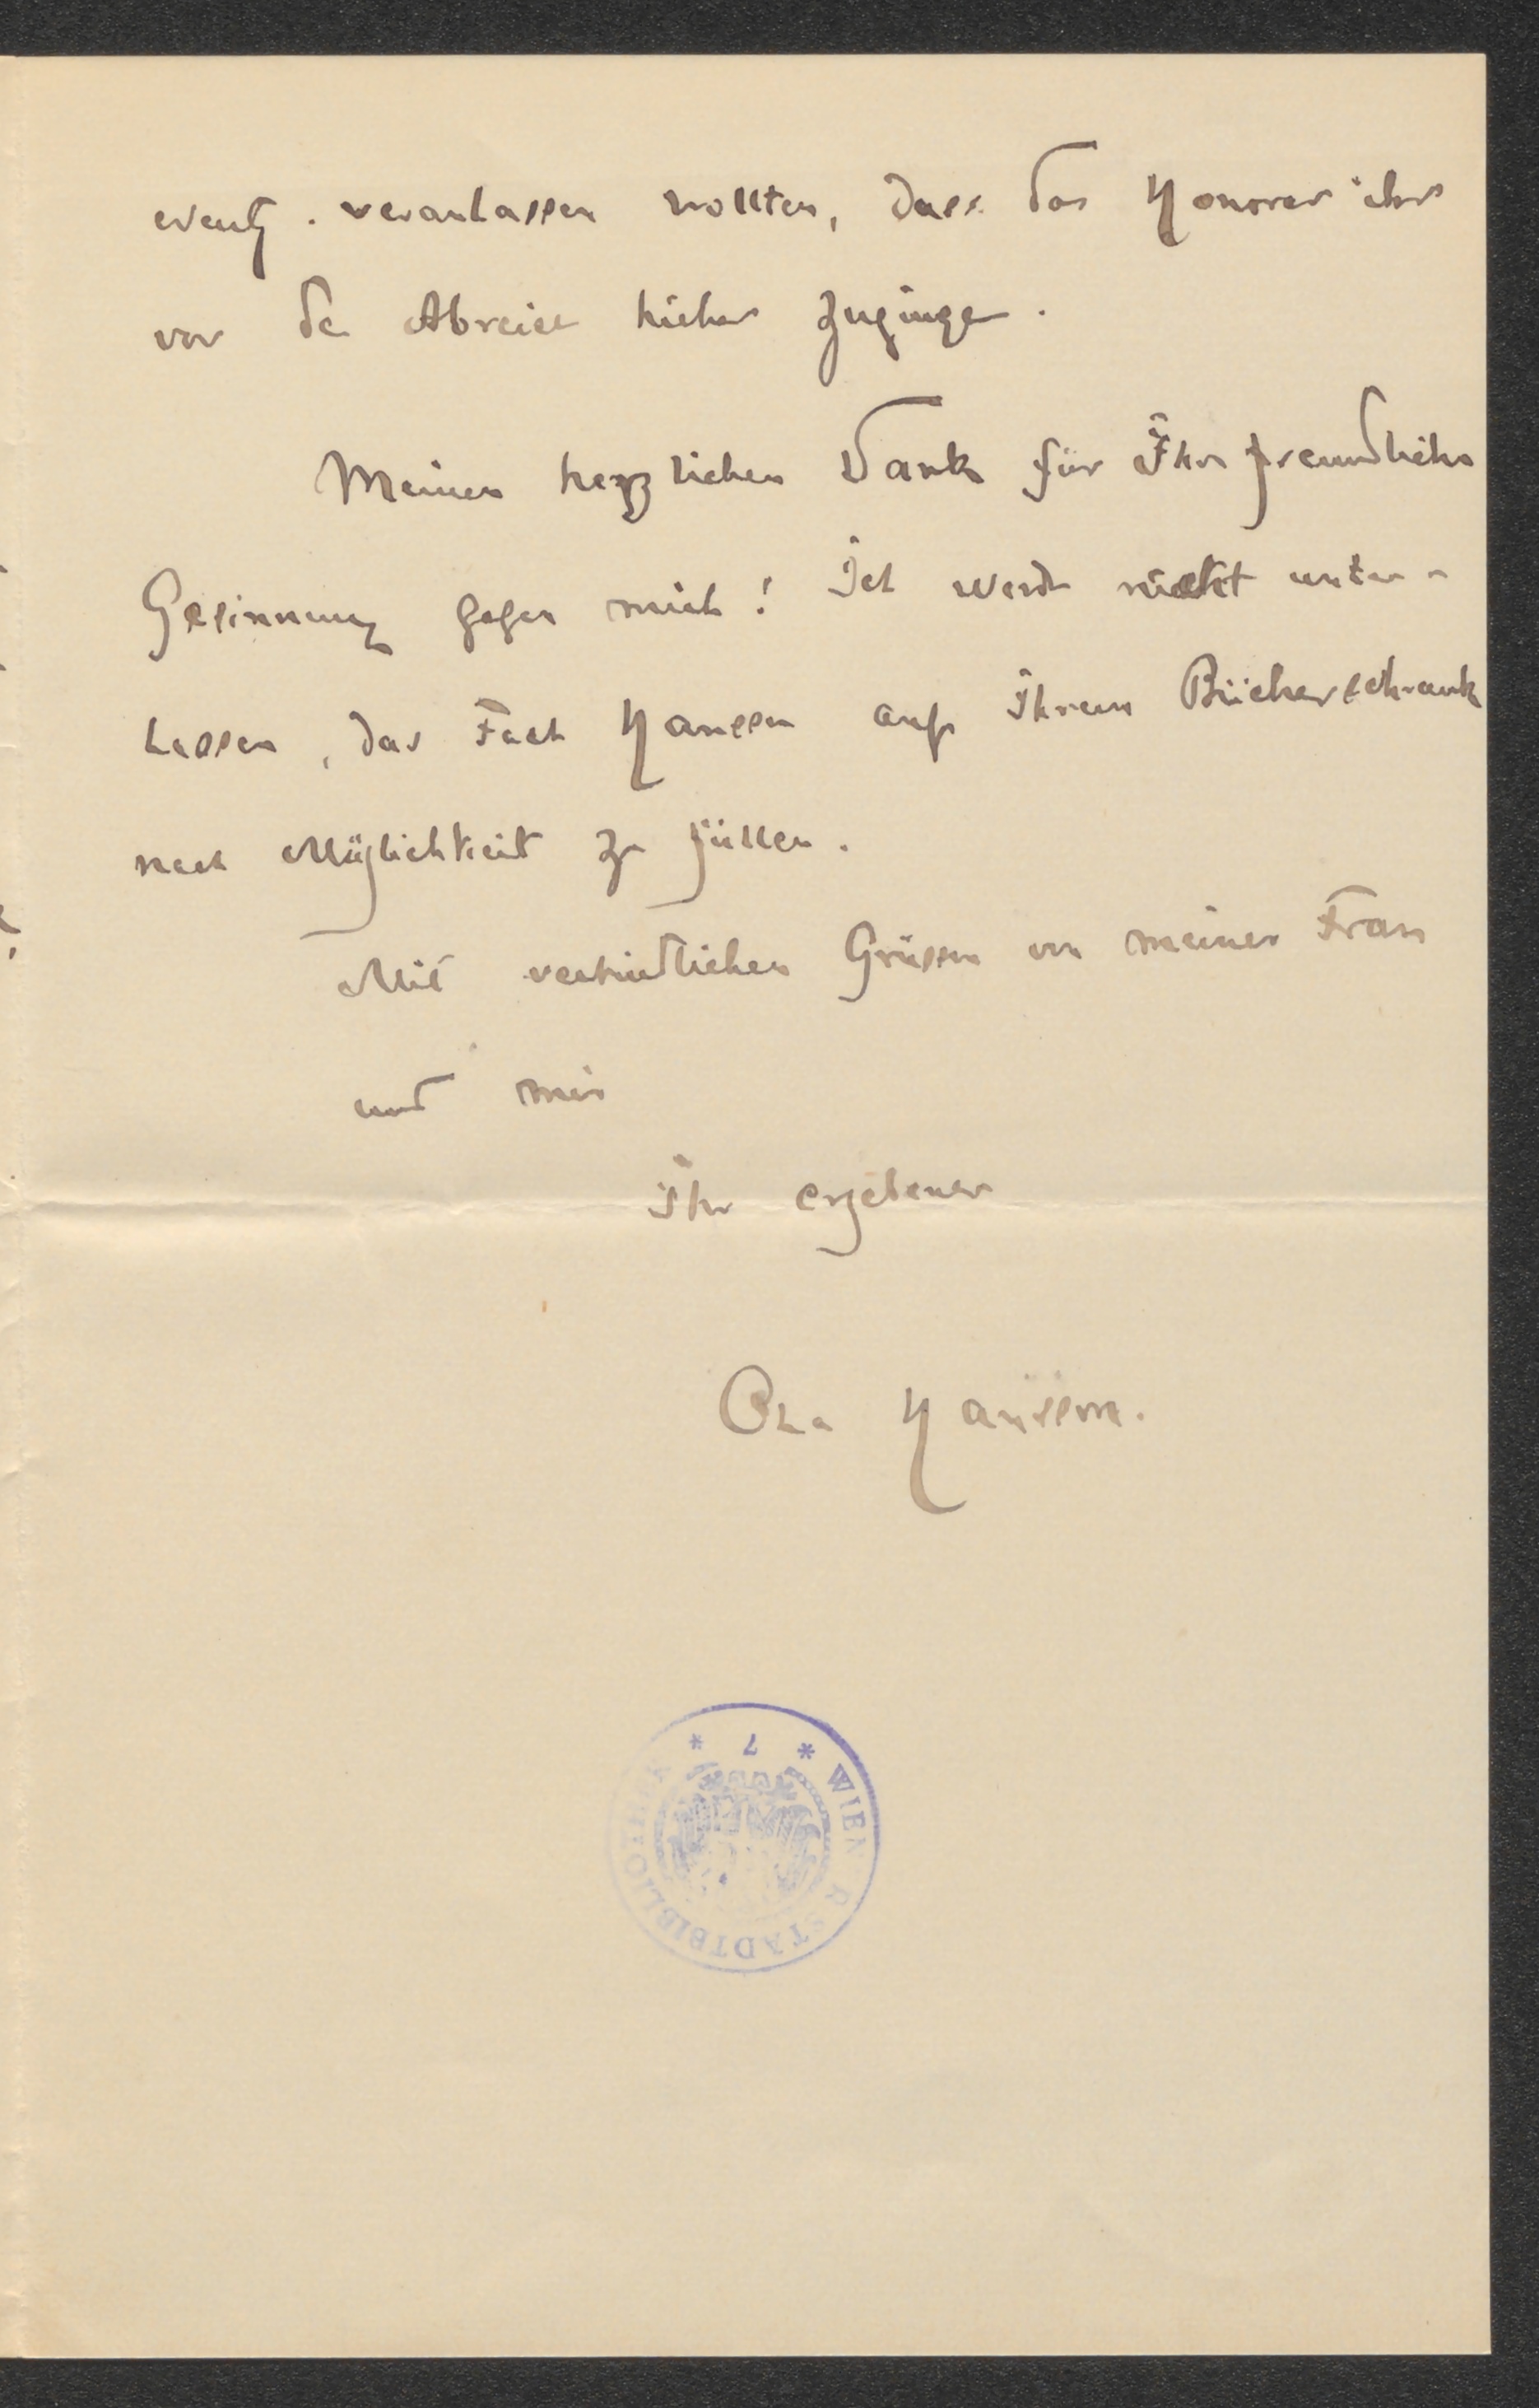 event. veranlassen wollten, dass das Honorar ihr
vor der Abreise hieher zuginge.
Meinen herzlichen Dank für Ihre freundliche
Gesinnung gegen mich! Ich werde nicht unter-
lassen, das Fach Hansson auf Ihrem Bücherschrank
nach Möglichkeit zu füllen.
Mit verbindlichen Grüssen von meiner Frau
und mir
Ihr ergebener
Ola Hansson.
* 7 * WIENER STADTBIBLIOTHEK